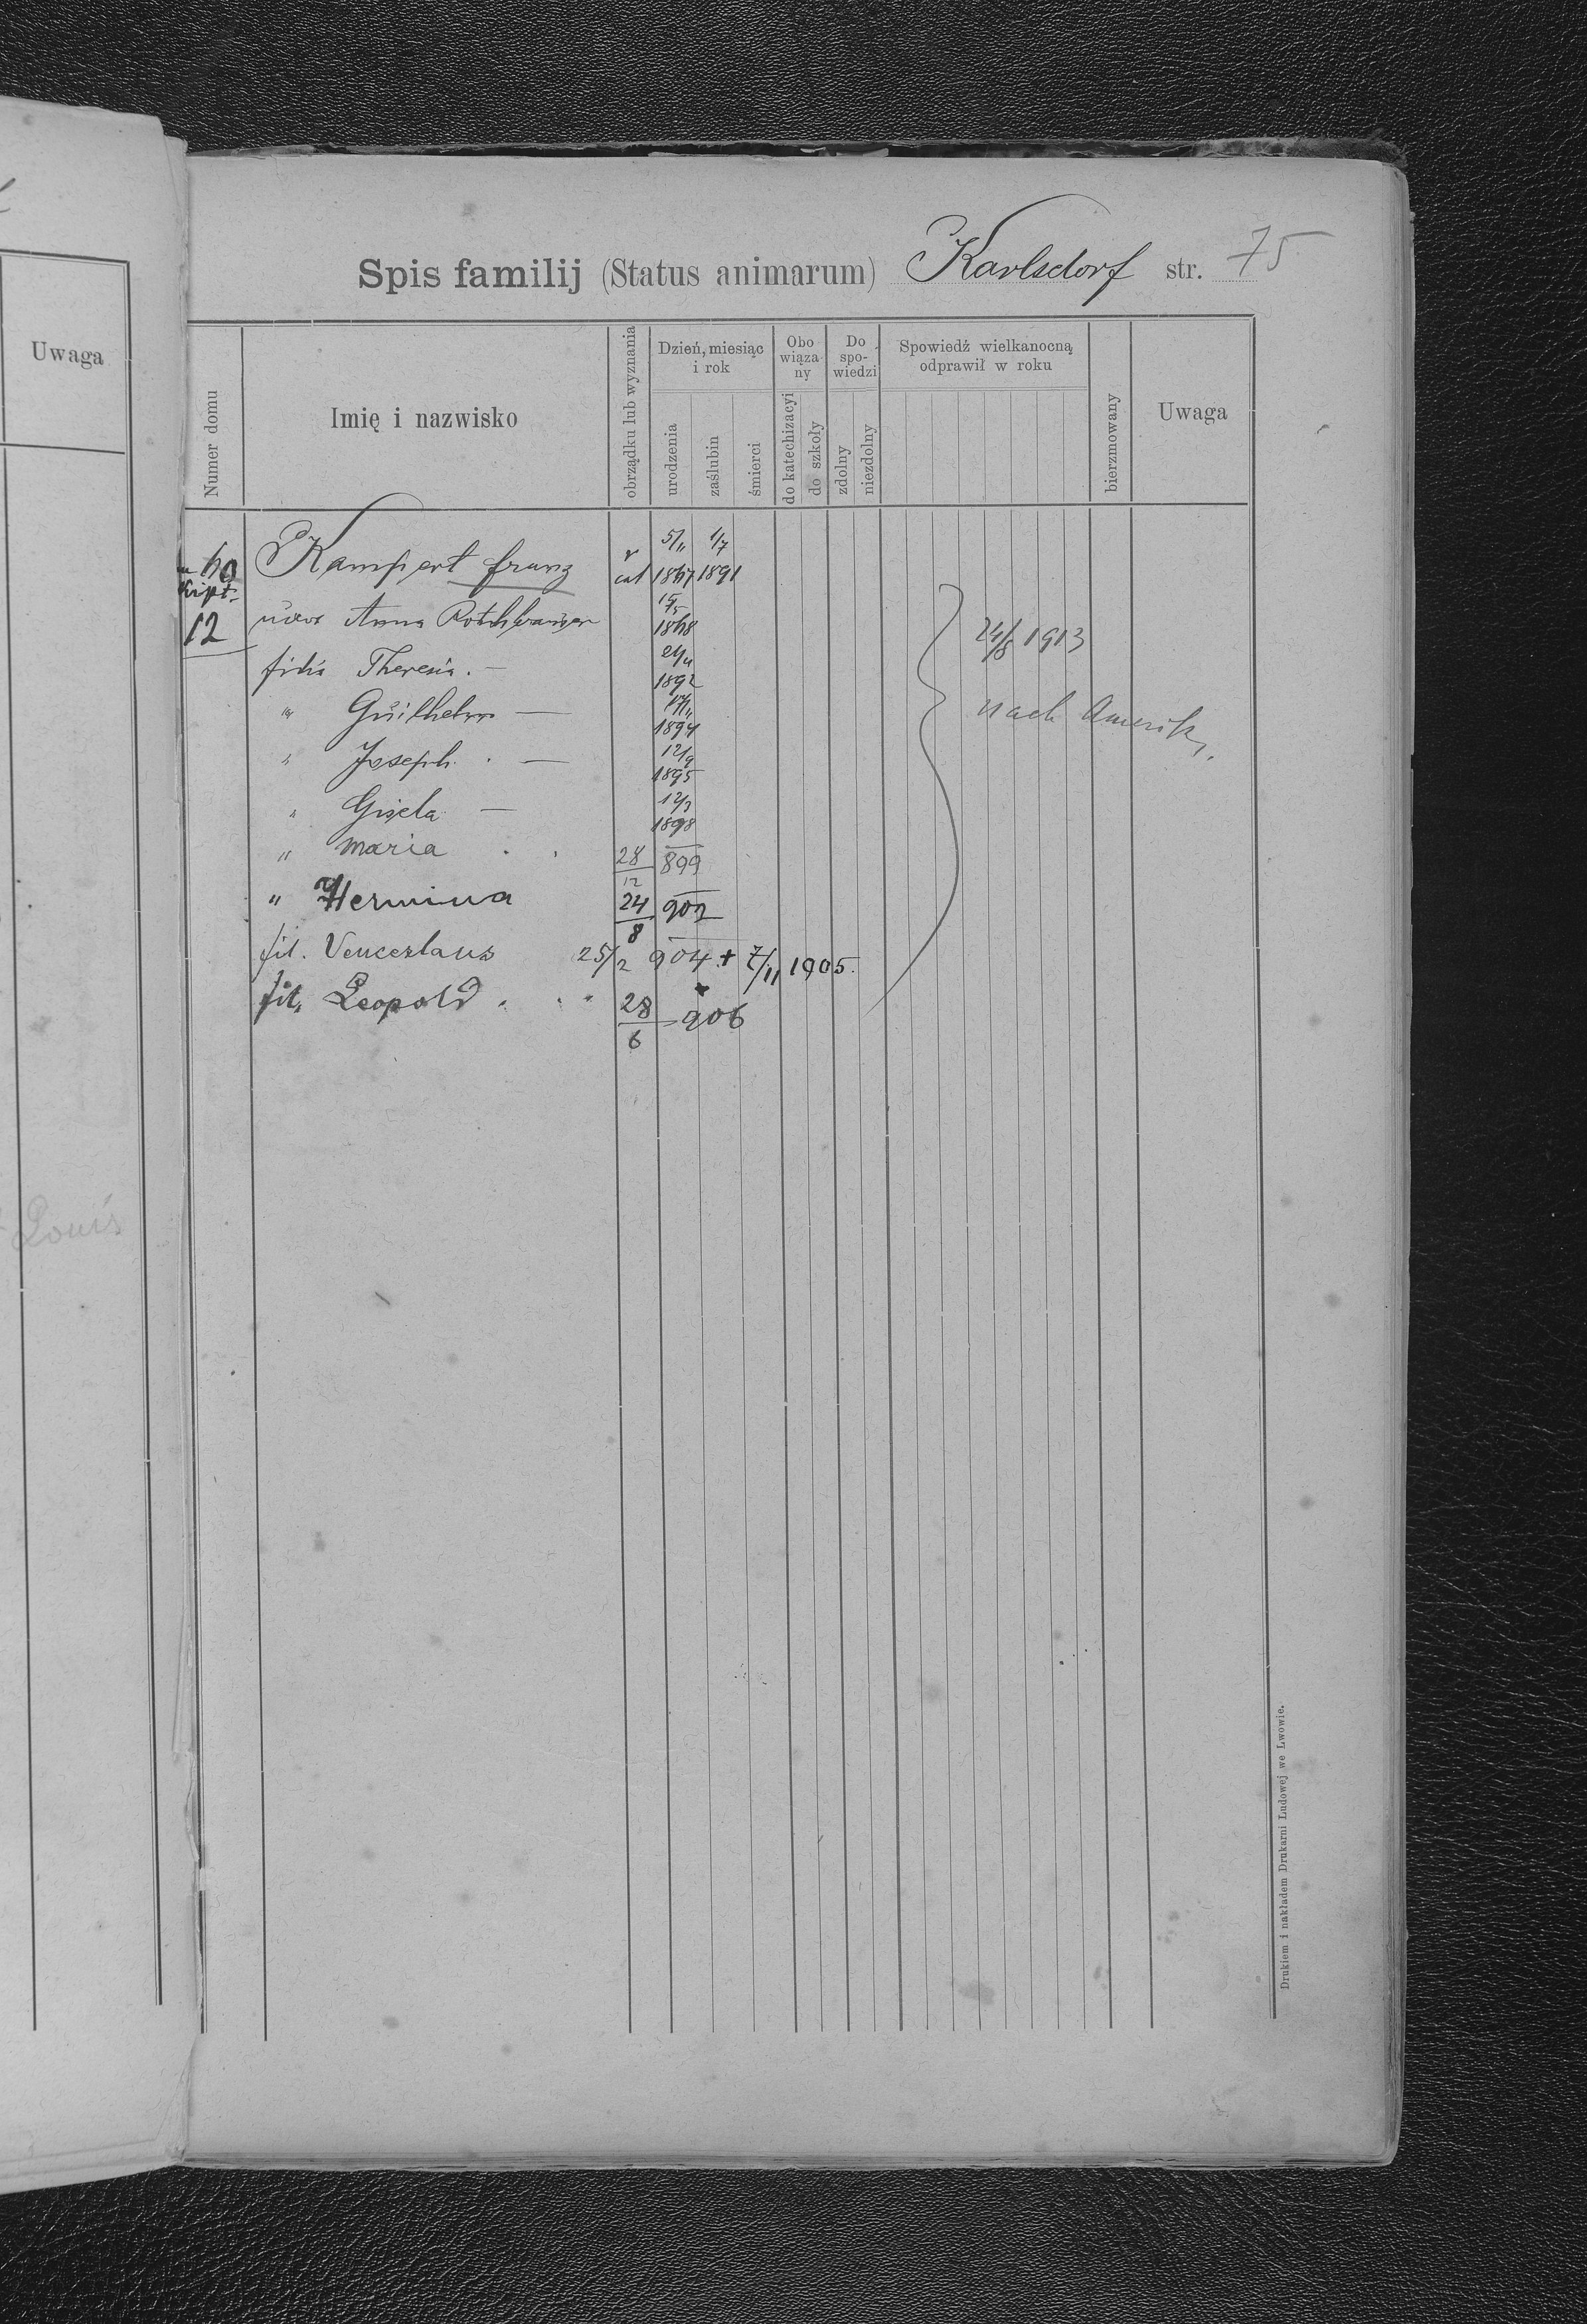 Uwaga
Louis
Spis familij (Status animarum) Karlsdorf str. 75
Numer domu
Imię i nazwisko
obrządku lub wyznania
Dzień, miesiąc i rok
urodzenia
zaślubin
śmierci
Obo wiąza ny
do katechizacyi
do szkoły
Do spo- wiedzi
zdolny
niezdolny
Spowiedź wielkanocną odprawił w roku
bierzmowany
Uwaga
Kampert Franz r cat 5/11 1867 1/7 1891
12
uxor Anna 1868
filia Theresia. — 1892
" Guilhelm — 1894
" Joseph. — 12/9 1895
" Gisela — 12/3 1898
" Maria 28/12 899
" Hermina 24/8 902
fil. Venceslaus 25/2 904 + 7/11 1905.
fil. Leopold 28/6 906
24/8 1913
nach Amerik.
Drukiem i nakładem Drukarni Ludowej we Lwowie.